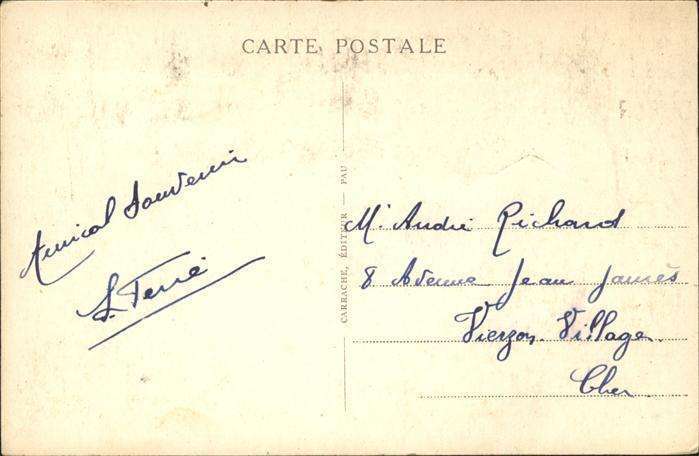 CARTE POSTALE
Amical Souvenir
CARRACHE, ÉDITEUR — PAU
Mr André Richard
8 Avenue Jean Jaurès
Vierzon. Village.
Cher